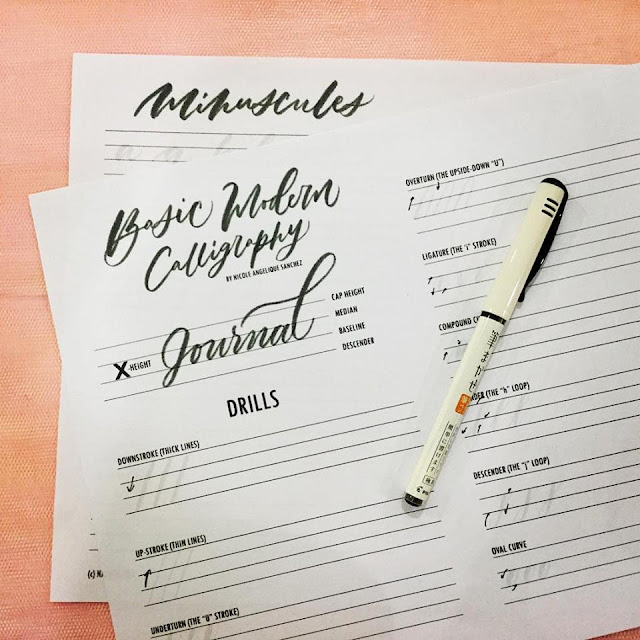 Minuscules
Basic Modern
Calligraphy
BY NICOLE ANGELIQUE SANCHEZ
X-HEIGHT
Journal
CAP HEIGHT
MEDIAN
BASELINE
DESCENDER
DRILLS
DOWNSTROKE (THICK LINES)
UP-STROKE (THIN LINES)
UNDERTURN (THE "U" STROKE)
OVERTURN (THE UPSIDE-DOWN "U")
LIGATURE (THE "i" STROKE)
COMPOUND
NDER (THE "h" LOOP)
DESCENDER (THE "j" LOOP)
OVAL CURVE
(c)